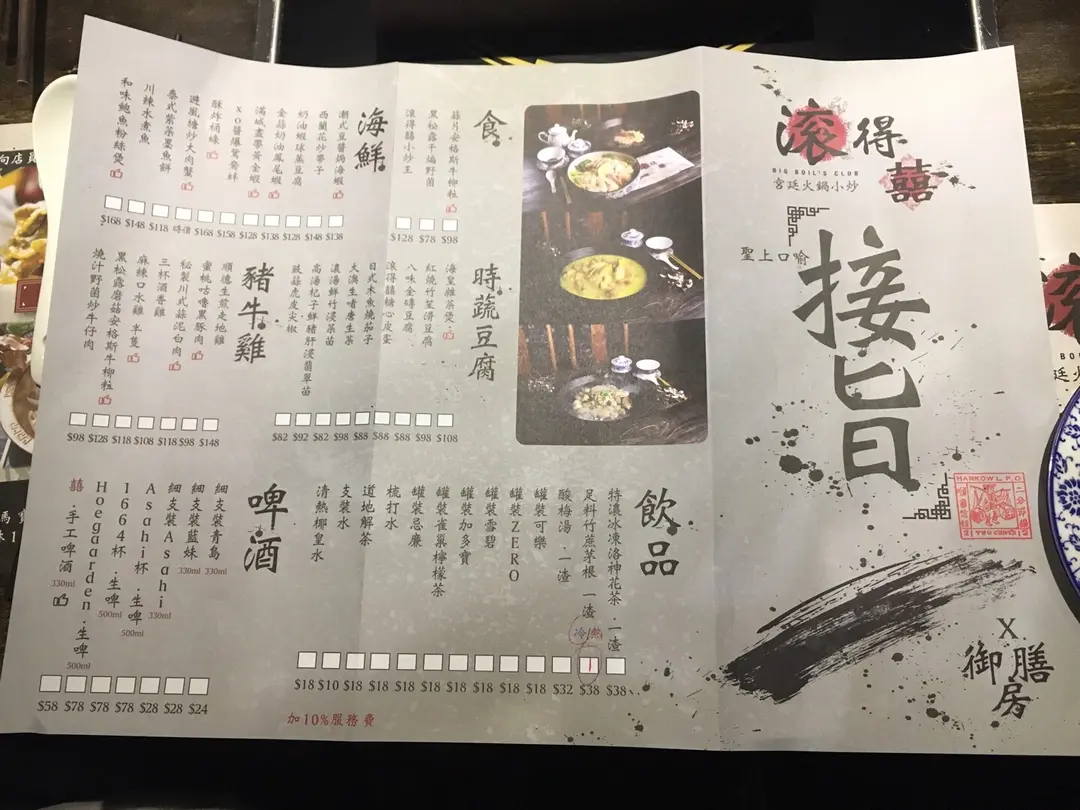 滾得囍
BIG BOIL'S CLUB
宮廷火鍋小炒
聖上口喻
接旨
HANKOW L. P. O.
X
御膳房
食
蒜片安格斯牛柳粒
黑松露干煸野菌
滾得囍小炒王
$128 $78 $98
海鮮
潮式豆醬焗海蝦
西蘭花炒帶子
奶油蝦球蒸豆腐
金蒜奶油鳳尾蝦
滿城盡帶黃金蝦
XO醬爆鴛鴦蚌
酥炸桶蠔
避風塘炒大肉蟹
泰式紫菜墨魚餅
川辣水煮魚
和味鮑魚粉絲煲
$168 $148 $118 時價 $168 $158 $128 $138 $128 $148 $138
時蔬豆腐
海皇雜菜煲
紅燒竹笙滑豆腐
八味金磚豆腐
滾得囍糖心皮蛋
日式木魚燒茄子
大澳生嗜唐生菜
濃湯鮮竹浸菜苗
高湯杞子鮮豬肝浸翡翠苗
豉蒜虎皮尖椒
$82 $92 $82 $98 $88 $88 $88 $98 $108
豬牛雞
順德生煎走地雞
蜜桃咕嚕黑豚肉
秘製川式蒜泥白肉
三杯酒香雞
麻辣口水雞 半隻
黑松露蘑菇安格斯牛柳粒
燒汁野菌炒牛仔肉
$98 $128 $118 $108 $118 $98 $148
飲品
特濃冰凍洛神花茶.一渣
足料竹蔗茅根 一渣 冷/熱
酸梅湯.一渣
罐裝可樂
罐裝ZERO
罐裝雪碧
罐裝加多寶
罐裝雀巢檸檬茶
罐裝忌廉
梳打水
道地解茶
支裝水
清熱椰皇水
$18 $10 $18 $18 $18 $18 $18 $18 $18 $18 $32 $38 $38
1
加10%服務費
啤酒
細支裝青島 330ml
細支裝藍妹 330ml
細支裝Asahi 330ml
Asahi杯.生啤 500ml
1664杯.生啤 500ml
Hoegaarden.生啤 500ml
囍.手工啤酒 330ml
$58 $78 $78 $78 $28 $28 $24